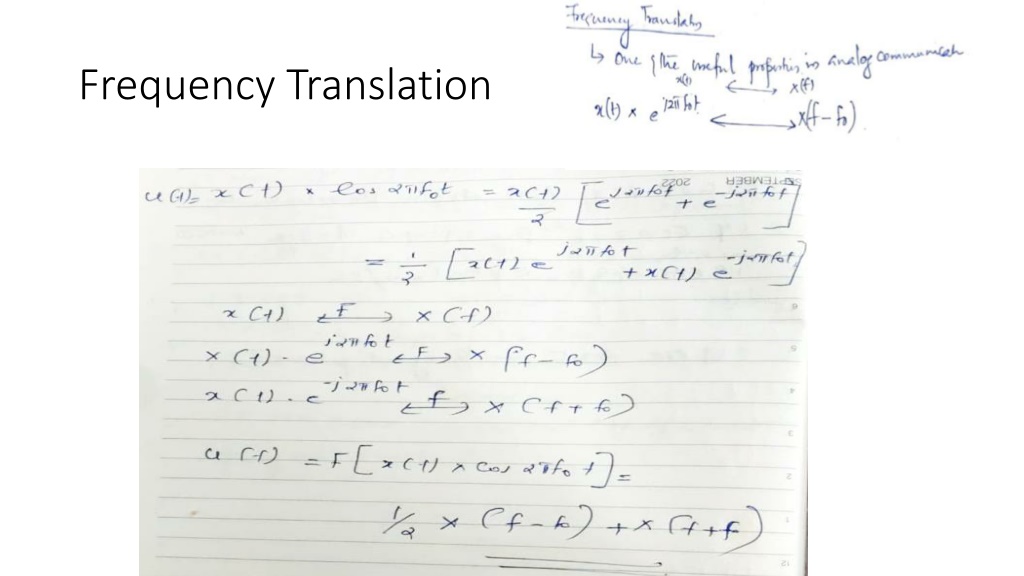 Frequency Translation
Frequency Translatn
↳ One of the useful properties in analog communicatn
x(t) ⟷ X(f)
x(t) × e^j2πf₀t ⟷ X(f-f₀)
SEPTEMBER
2022
u(t)= x(t) × Cos 2πf₀t = x(t)/2 [e^j2πf₀t + e^-j2πf₀t]
= 1/2 [x(t) e^j2πf₀t + x(t) e^-j2πf₀t]
x(t) ⟷F X(f)
x(t) · e^j2πf₀t ⟷F X(f-f₀)
x(t) · e^-j2πf₀t ⟷F X(f+f₀)
u(f) = F[x(t) × Cos 2πf₀t] =
1/2 X(f-f₀) + X(f+f)
6
5
4
3
2
1
12